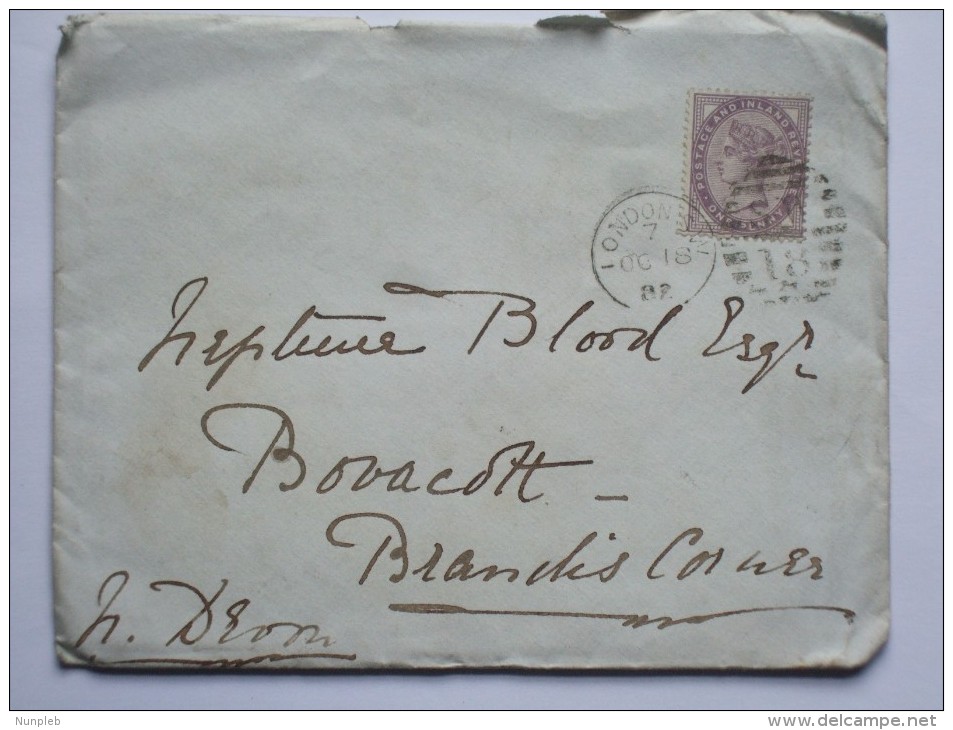 POSTAGE AND INLAND REVENUE
ONE PENNY
LONDON
7
OC 18
82
18
Neptune Blood Esqr.
Bovacott -
Brandis Corner
N. Devon
Nunpleb
www.delcampe.net